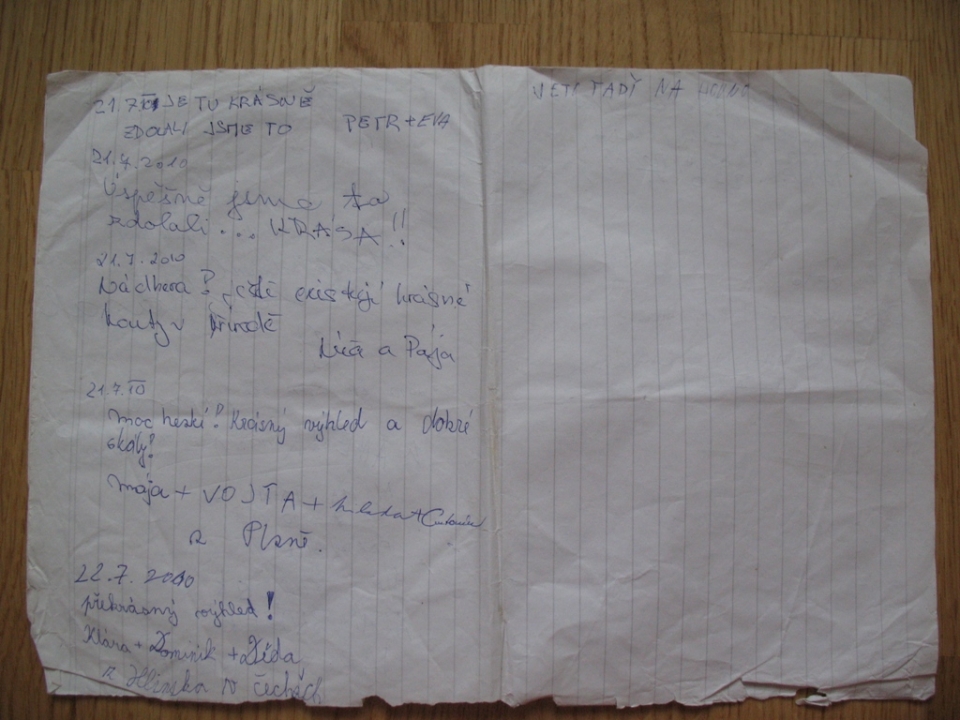 21.7. JE TU KRÁSNĚ
ZDOLALI JSME TO PETR+EVA
21.7.2010
Úspěšně jsme to
zdolali ... KRÁSA!!
21.7.2010
Nádhera! ještě existují krásné
kouty v přírodě
a Pája
21.7.10
moc heski! Krásný výhled a dobré
skály!
mája + VOJTA +
z Plzně.
22.7.2010
překrásný výhled!
Klára + Dominik + Děda
z Hlinska v Čechách
TADY NA